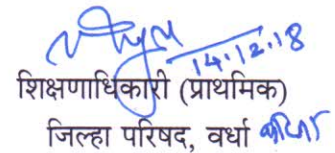 14.12.18
शिक्षणाधिकारी (प्राथमिक)
जिल्हा परिषद, वर्धा